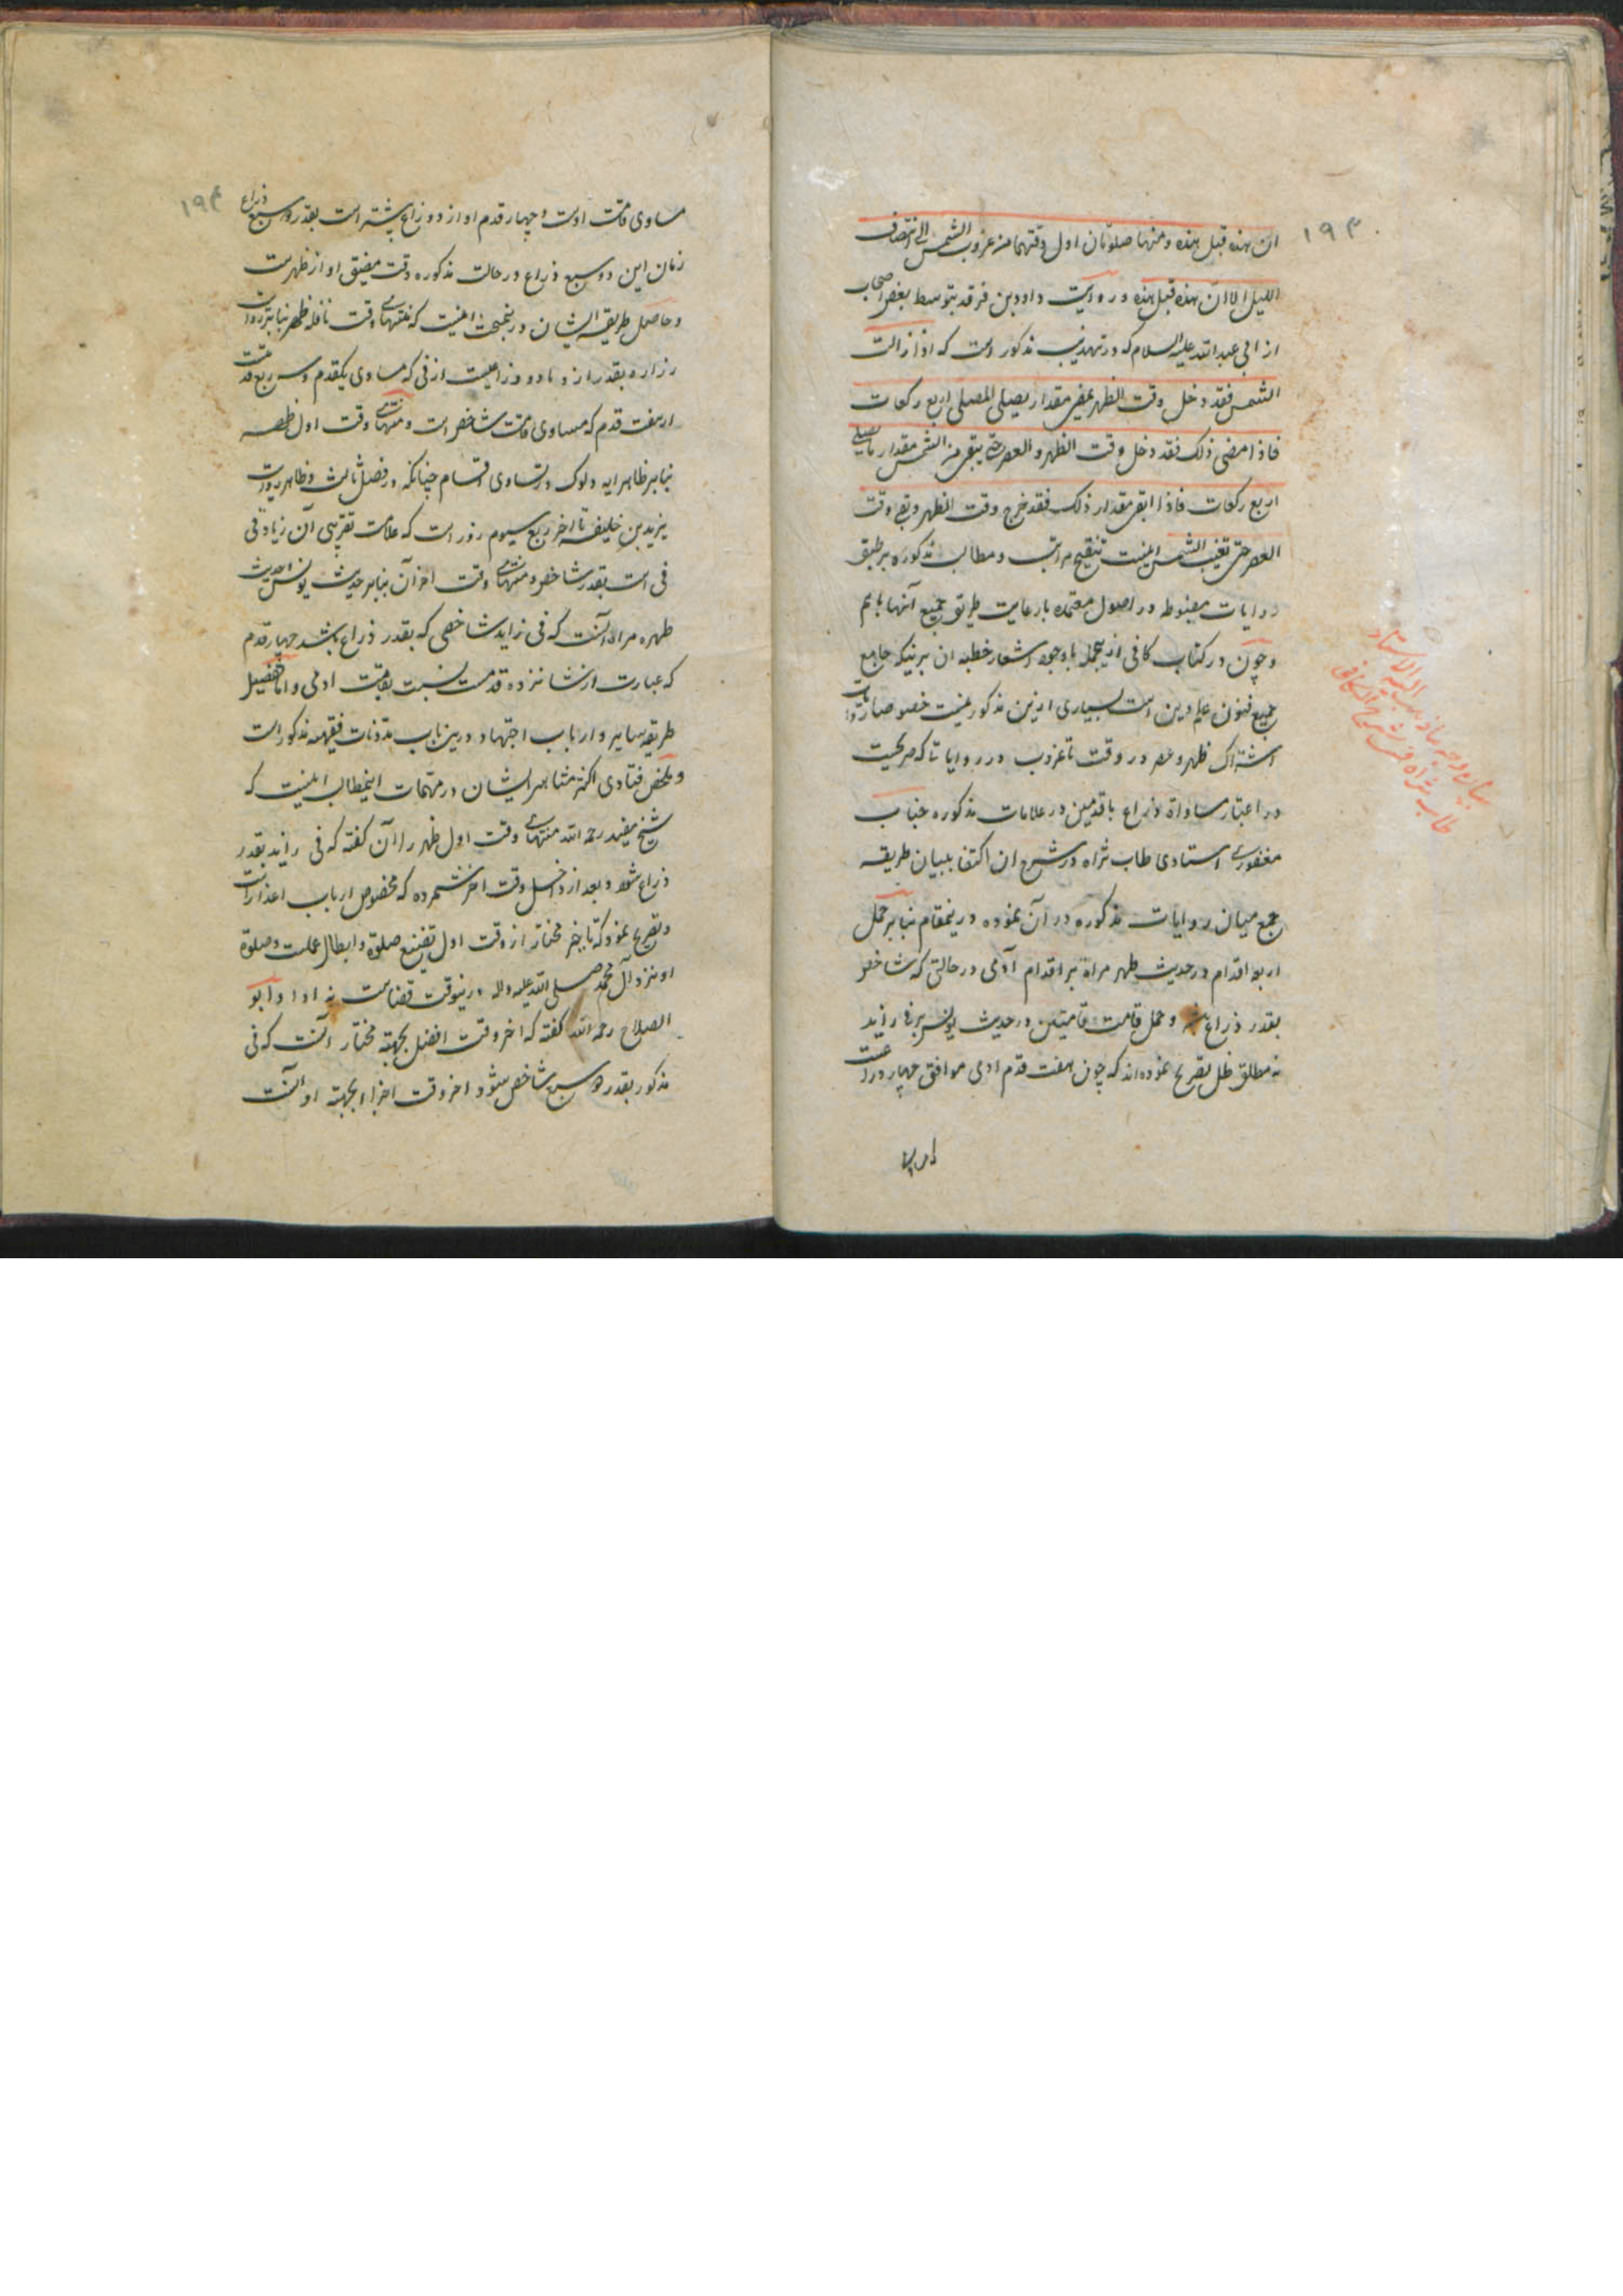 ۱۹۳
ان هذه قبل هذه و منها صلوتان اول وقتهما من غروب الشمس الی انتصاف
اللیل الا ان هذه قبل هذه و روایت داود بن فرقد بتوسط بعض اصحاب
از ابی عبد الله علیه السلام که در تهذیب مذکور است که اذا زالت
الشمس فقد دخل وقت الظهر بمضی مقدار یصلی المصلی اربع رکعات
فاذا مضی ذلک فقد دخل وقت الظهر و العصر حتی یبقی من الشمس مقدار ما یصلی
اربع رکعات فاذا ابقی مقدار ذلک فقد خرج وقت الظهر و بقی وقت
العصر حتی تغیب الشمس اینست تنقیح مراتب و مطالب مذکوره بر طبق
روایات مضبوطه در اصول معتمده با رعایت طریق جمیع آنها با هم
و چون در کتاب کافی ازین جمله با وجود اشعار خطبه ان برنیکه جامع
جمیع فنون علم دین است بسیاری ازین مذکور نیست خصوصا روایات
اشتراک ظهر و عصر در وقت تا غروب در روایاتا که صریحیت
در اعتبار مساواة ذراع با قدمین در علامات مذکوره جناب
مغفوری استادی طاب ثراه در شرح ان اکتفا ببیان طریقه
جمع میان روایات مذکوره در آن نموده درینمقام بنا بر حمل
اربع اقدام در حدیث ظهر مراة بر اقدام آدمی در حالتی که شاخص
بقدر ذراع باشد و حمل قامت قامتین در حدیث یونس بر فی زاید
نه مطلق ظل تصریح نموده‌اند که چون هفت قدم ادمی موافق چهار ذراعست
طاب ثراه فی شرح الکافی
۱۹۴
مساوی قامت اوست و چهار قدم او از دو ذراع بیشتر است بقدر دو سبع ذراع
زمان این دو سبع ذراع در حالت مذکوره وقت مضیق او از ظهرست
و حاصل طریقه ایشان درینمبحث اینست که منتهای وقت نافله ظهر بنا بر روایت
زراره بقدر از و ذراعیست از فی که مساوی یکقدم و سه ربع قدمست
از هفت قدم که مساوی قامت شاخص است و منتهای وقت اول ظهر
بنا بر ظاهر ایه دلوک و تساوی اقسام چنانکه در فصل ثالث و ظاهر روایت
یزید بن خلیفه تا اخر ربع سیوم روز است که علامت تقریبی آن زیادتی
فی است بقدر شاخص و منتهای وقت اخر آن بنا بر حدیث یونس و حدیث
طهر مراة آنست که فی زاید شاخصی که بقدر ذراع باشد چهار قدم
که عبارت از شانزده قدمست نسبت بقامت ادمی و اما تفصیل
طریقه سایر و ارباب اجتهاد درین باب مدونات فقیهه مذکور است
و ملخص فتاوی اکثر مشاهیر ایشان در مهمات اینمطالب اینست که
شیخ مفید رحمه الله منتهای وقت اول ظهر را آن گفته که فی زاید بقدر
ذراع شود و بعد از و داخل وقت اخر شمرده که مخصوص ارباب اعذار است
و تصریح نموده که تاخیر مختار از وقت اول تضییع صلوة و ابطال عملست و صلوة
او نزد آل محمد صلی الله علیه و اله درینوقت قضاست نه ادا و ابو
الصلاح رحمه الله گفته که اخر وقت افضل بجهة مختار آنست که فی
مذکور بقدر دو سبع شاخص شود و اخر وقت اجزا بجهة او آنست